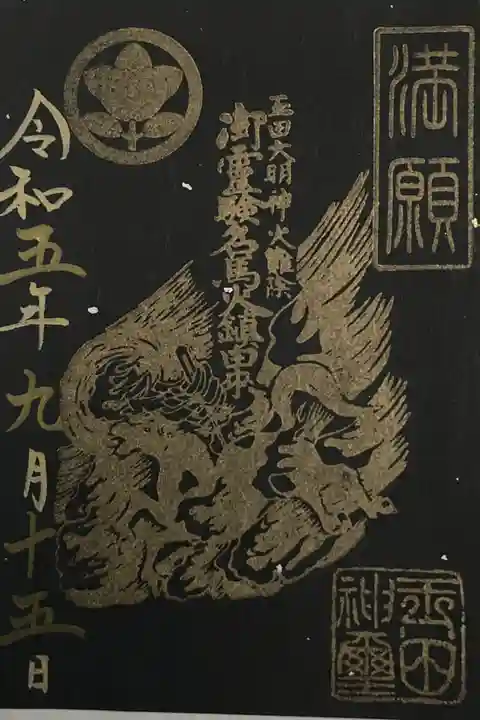 満願
玉田大明神火難除
御靈驗名馬火鎮串
令和五年九月十五日
玉田
神璽